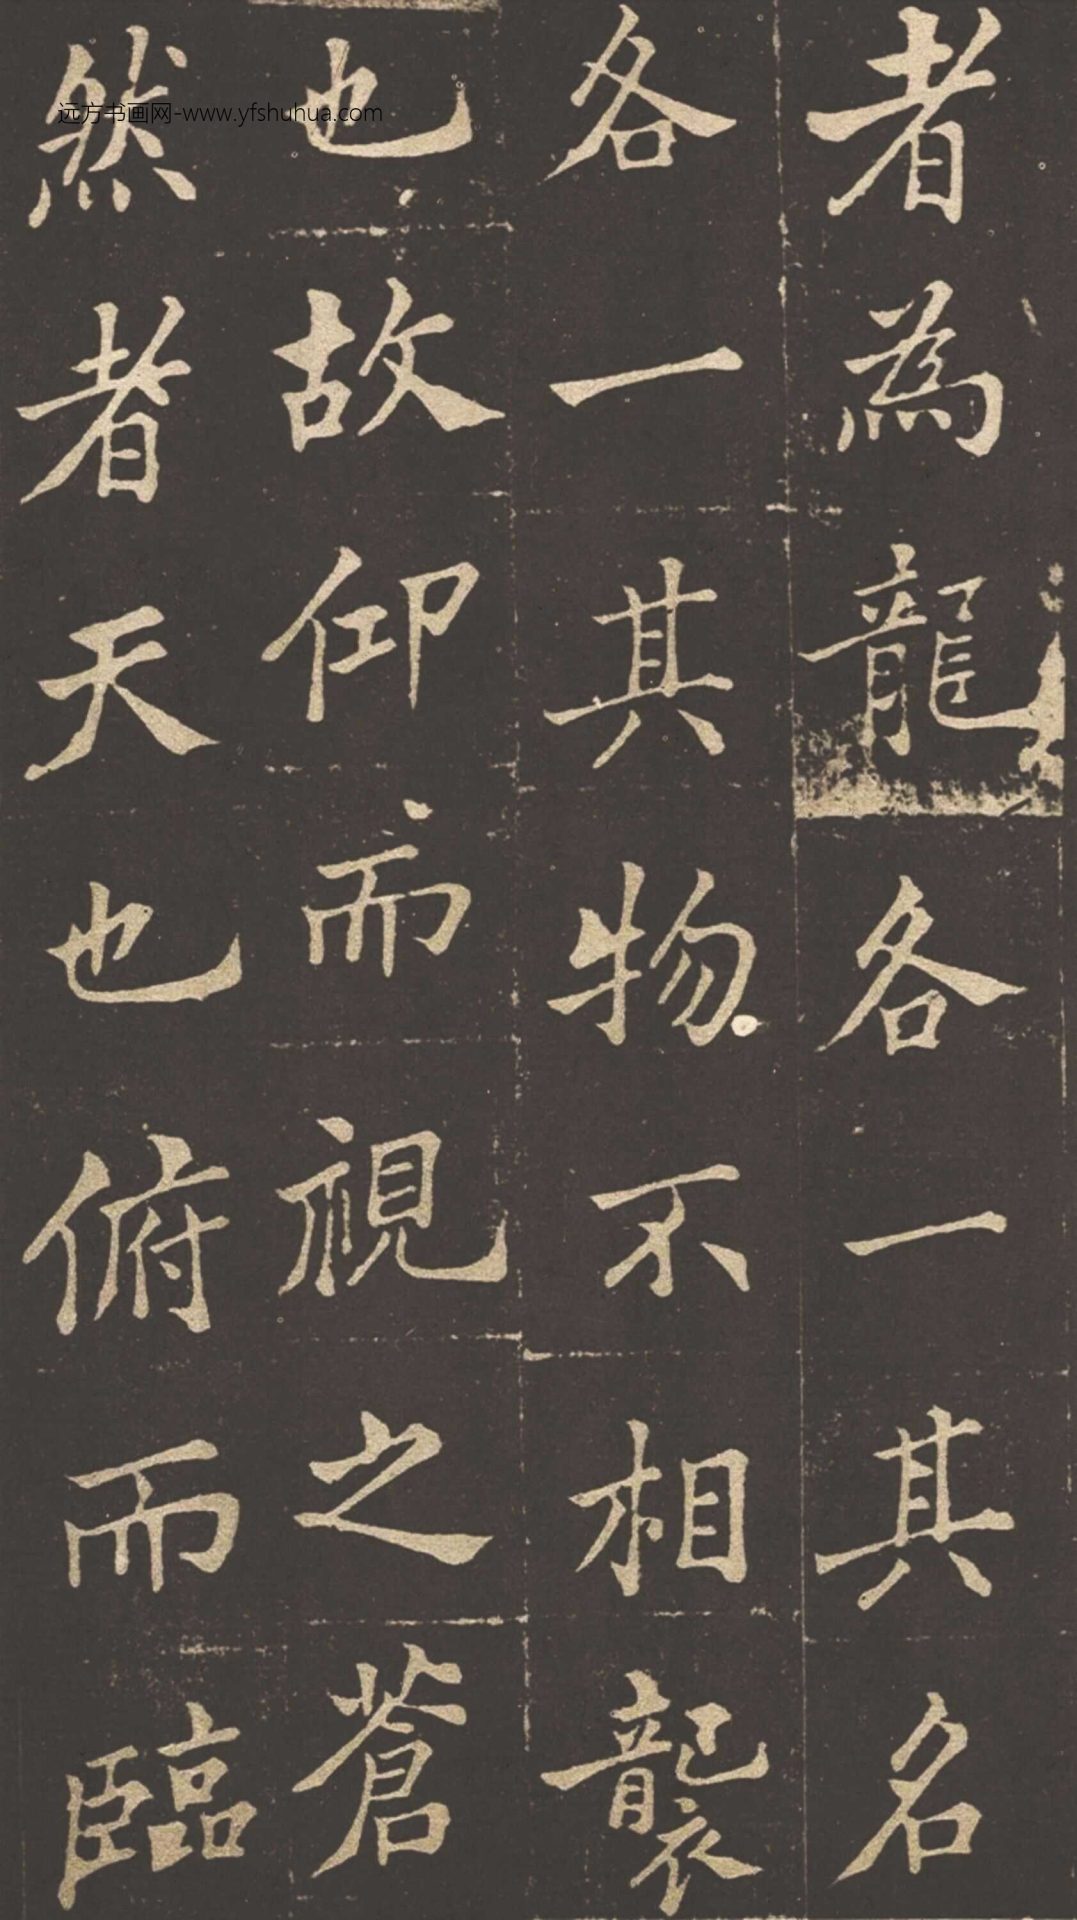 者為龍各一其名
各一其物不相襲
也故仰而視之蒼
然者天也俯而臨
远方书画网-www.yfshuhua.com